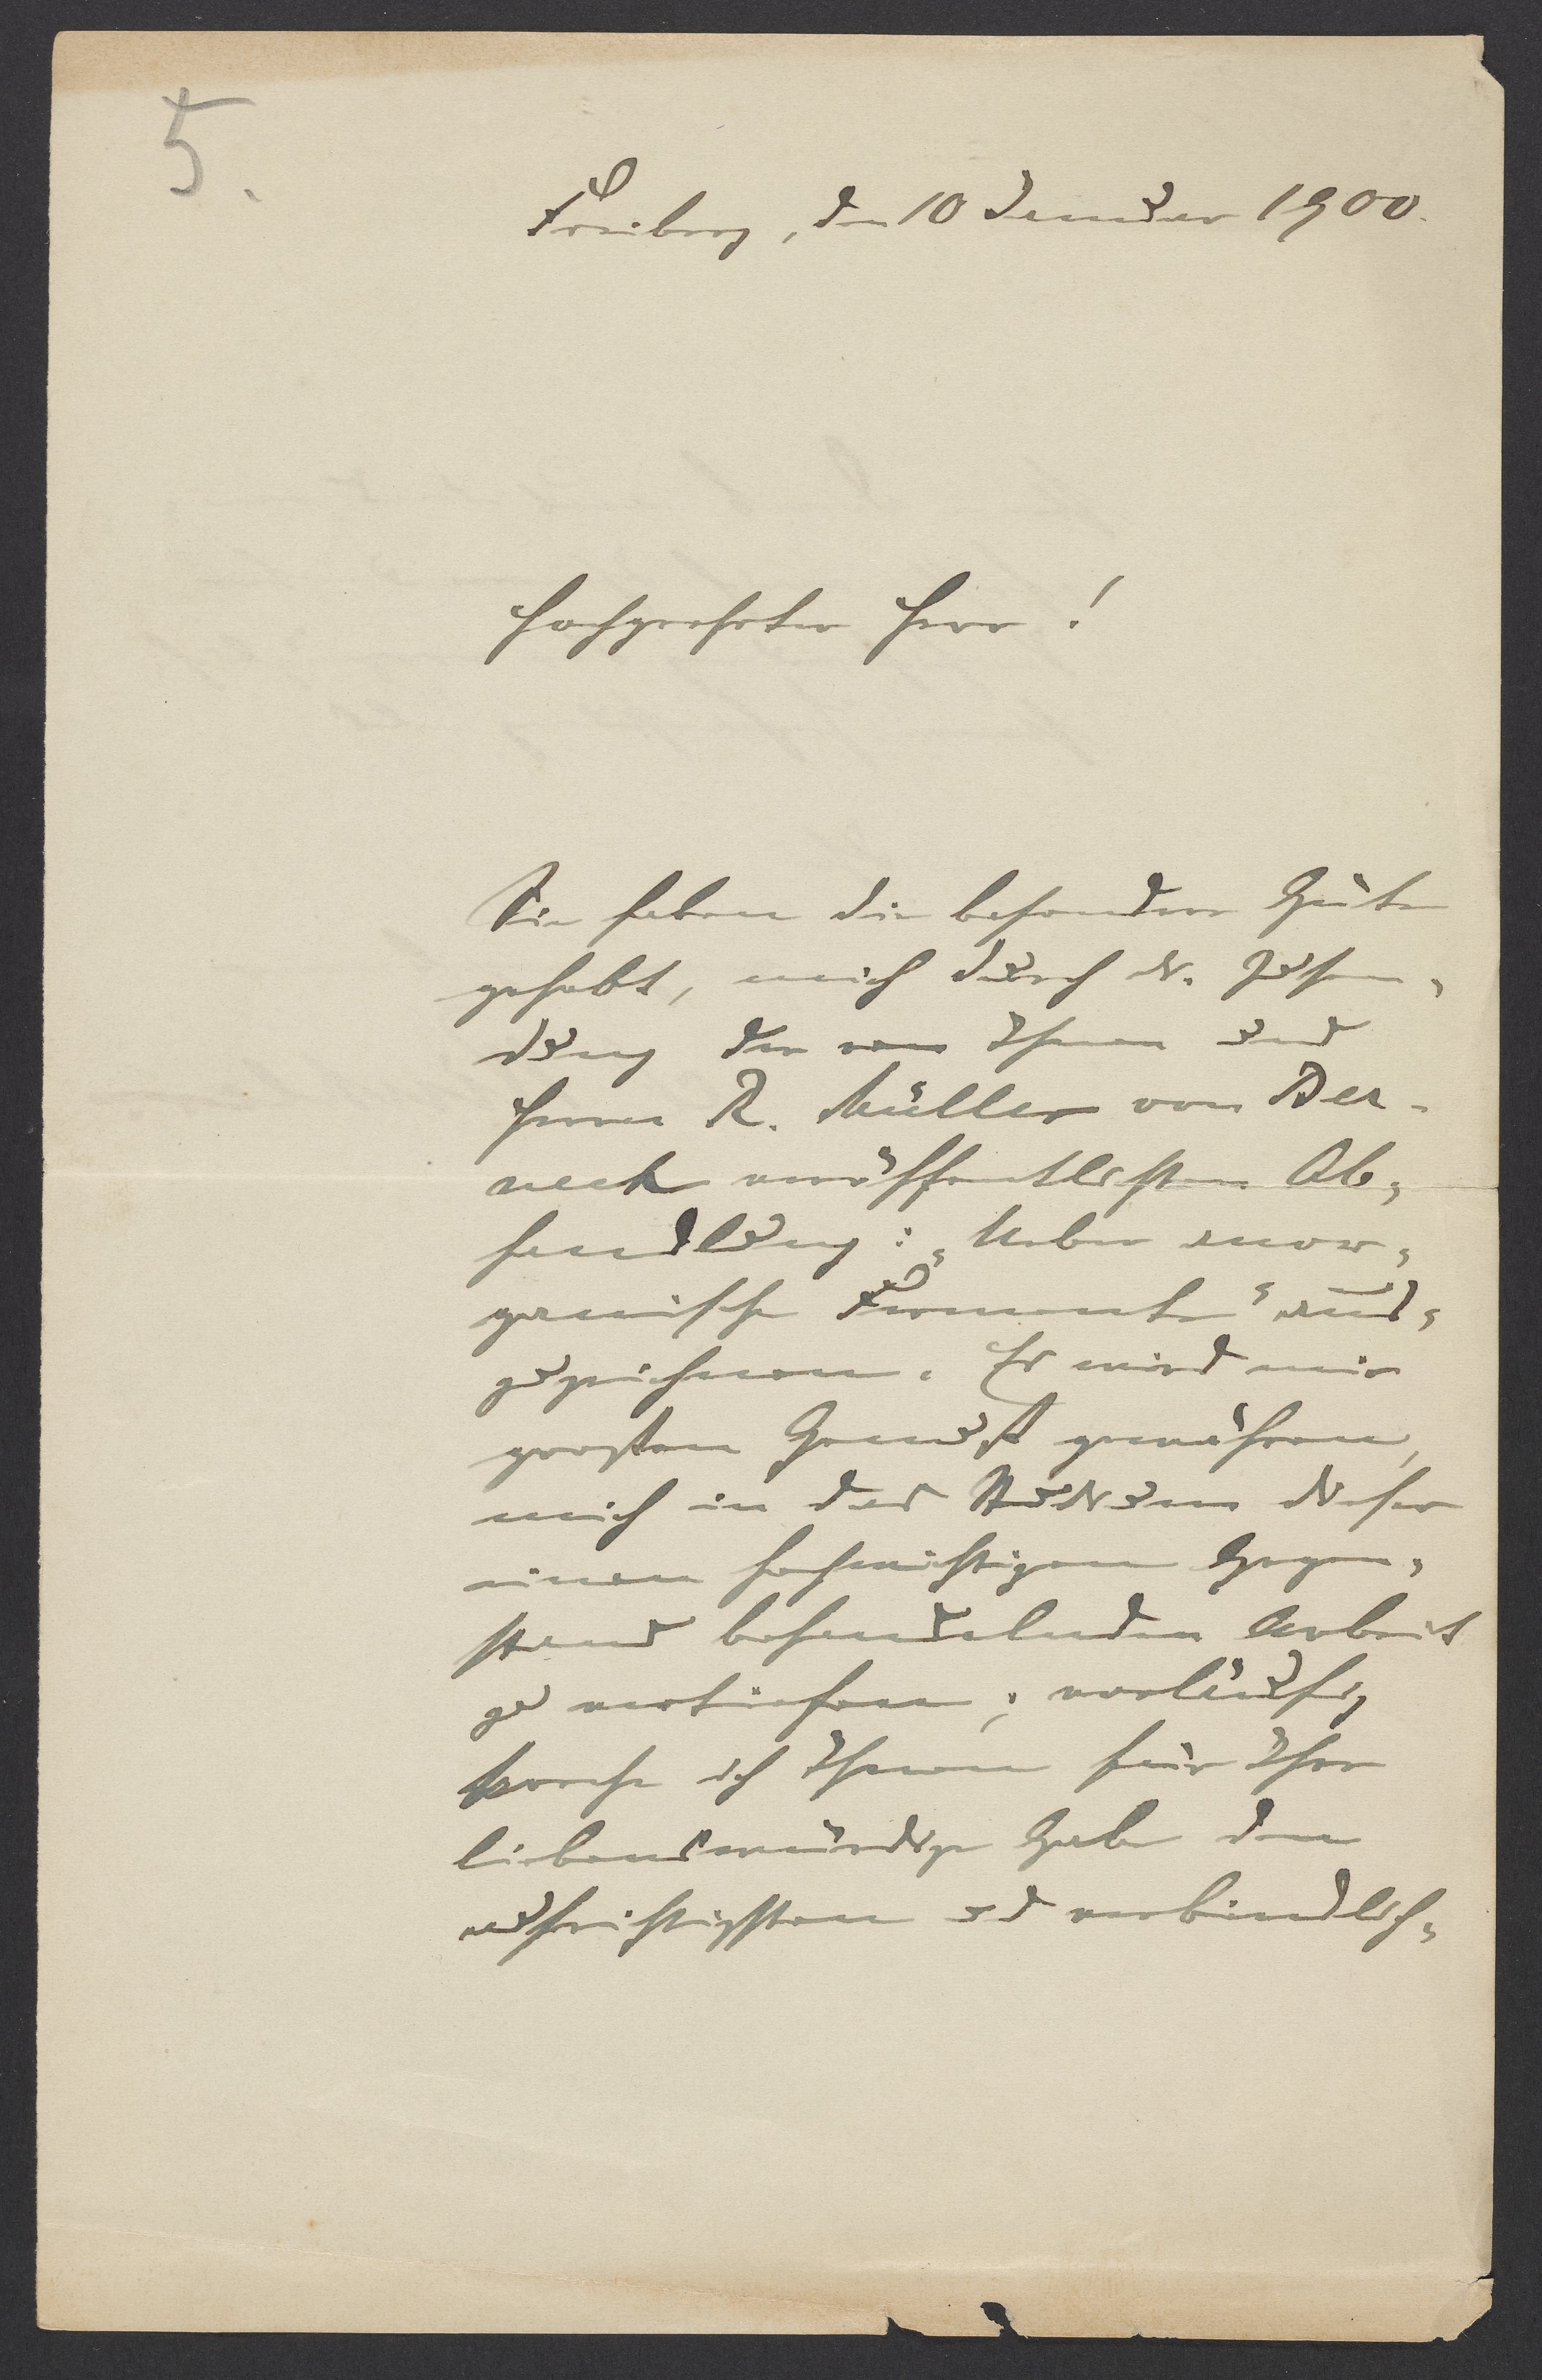 5.
Freiberg, den 10 Januar 1900.
Hochgeehrter Herr!
Sie haben die besondere Güte
gehabt, mich durch die Zusen-
dung der von Ihnen und
Herrn R. Müller von Ber-
neck veröffentlichten Ab-
handlung: „Ueber anor-
ganische Fermente" aus-
zuzeichnen. Es wird mir
großen Genuß gewähren,
mich in das Studium dieser
einen hochwichtigen Gegen-
stand behandelnden Arbeit
zu vertiefen; vorläufig
spreche ich Ihnen für Ihre
liebenswürdige Gabe den
aufrichtigsten und verbindlich-